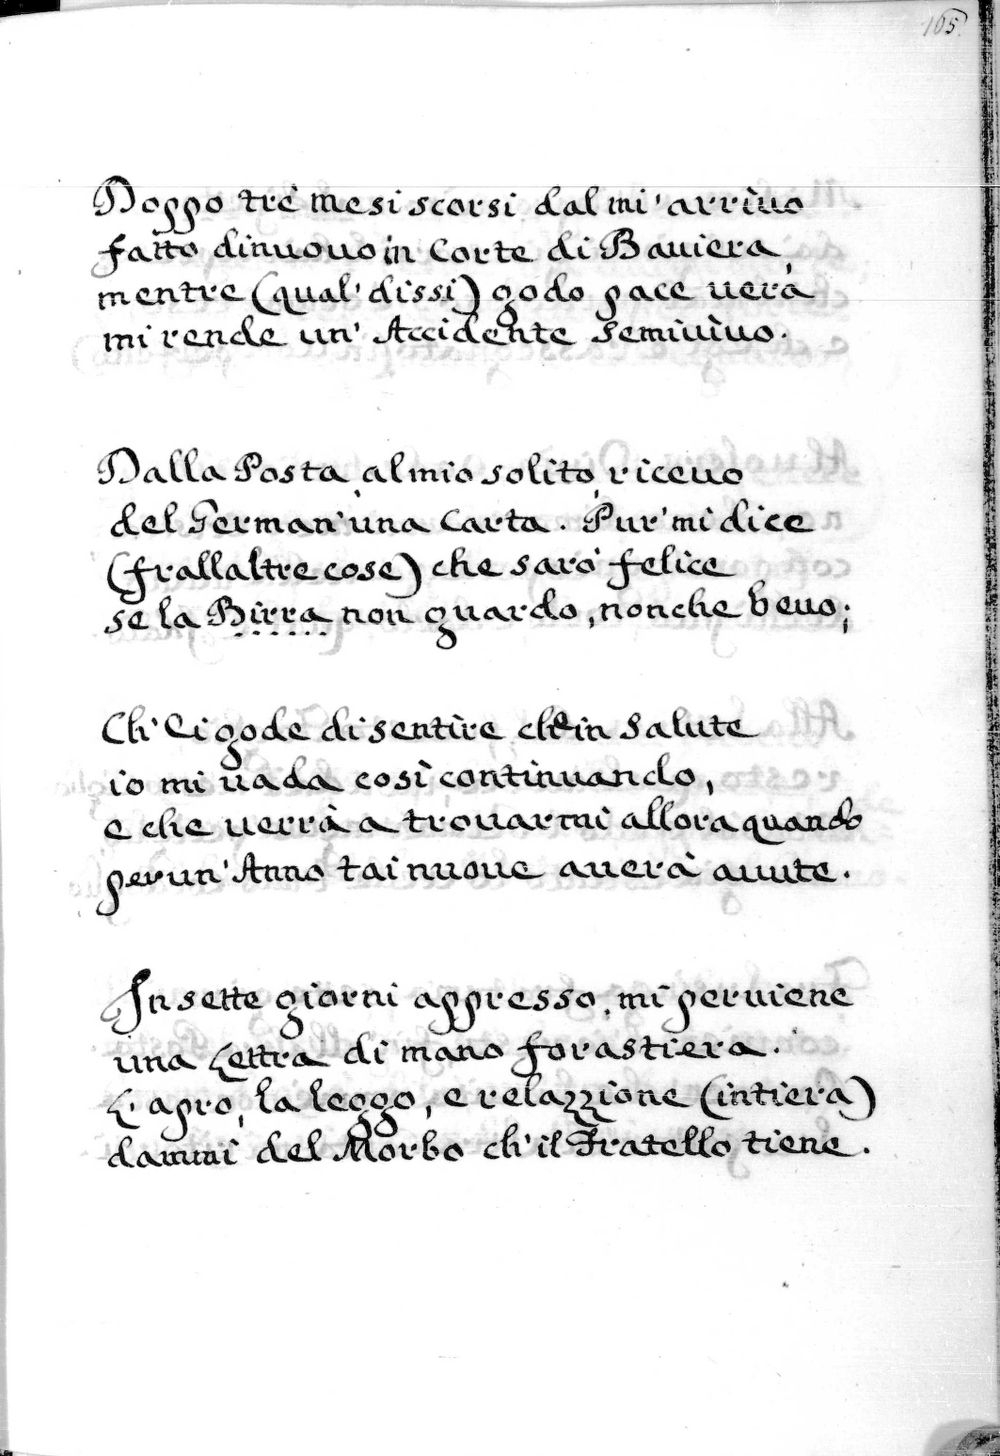 105.
Doppo trè mesi scorsi dal mi' arrìuo
fatto dinuouo in Corte di Bauiera,
mentre (qual' dissi) godo pace uera
mi rende un' Accidente semiuìuo.
Dalla Posta, al mio solito, riceuo
del German' una Carta. Pur' mi dice
(frallaltre cose) che sarò felice
se la Birra non guardo, nonche beuo;
Ch' Ei gode di sentìre che in salute
io mi uada così continuando,
e che uerrà a trouarmi allora quando
per un' Anno tai nuoue auerà auute.
In sette giorni appresso, mi peruiene
una Lettra di mano forastiera.
L' apro, la leggo, e relazzione (intiera)
dammi del Morbo ch' il Fratello tiene.